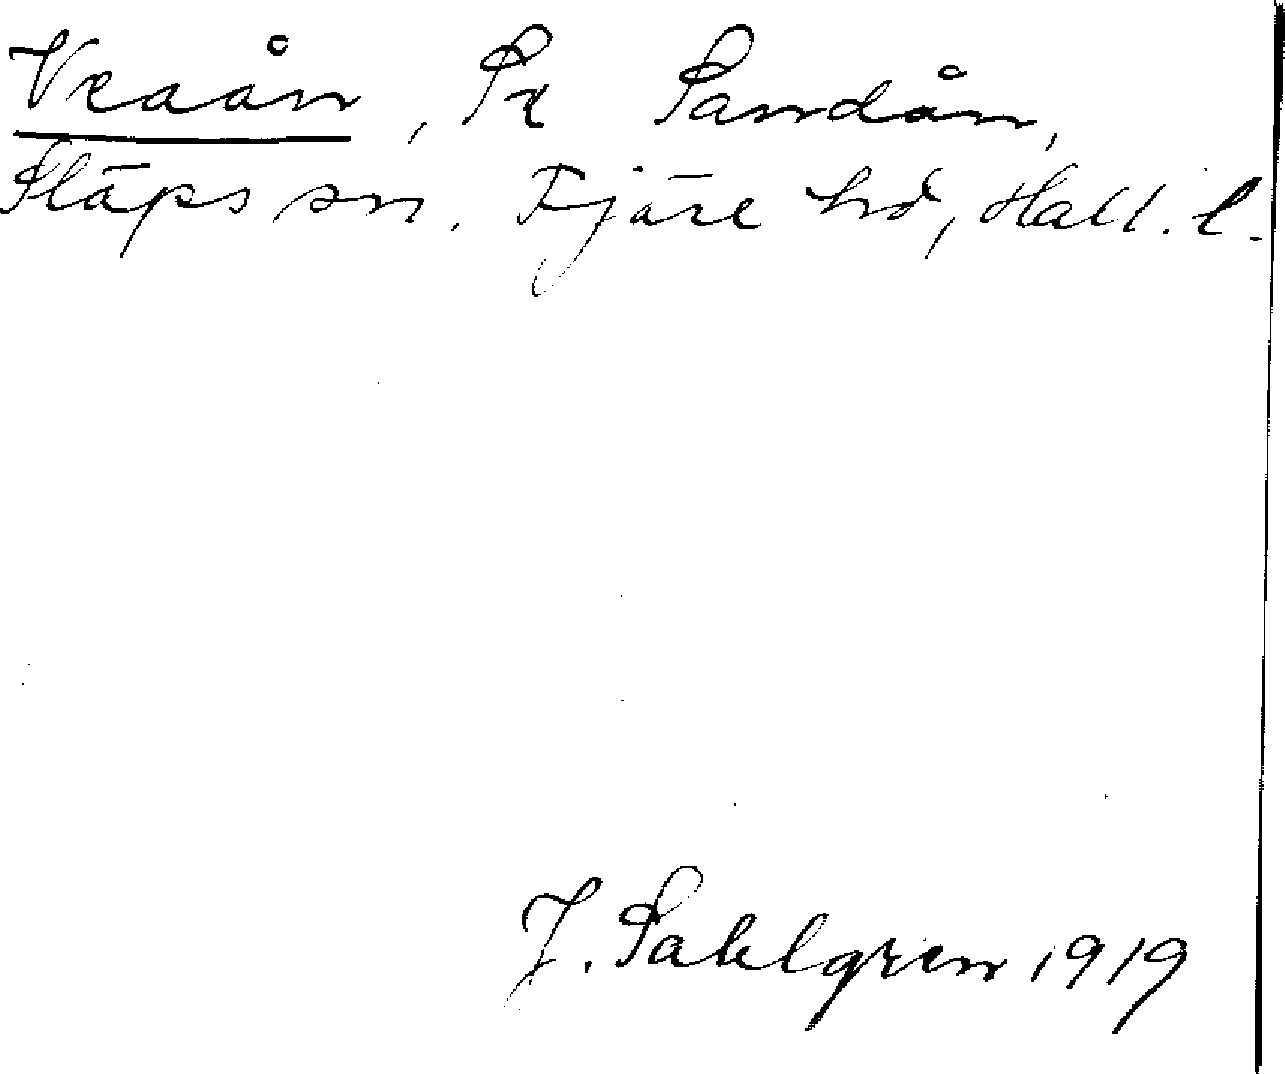 Veaån, Se Sandån,
Släps sn. Fjäre hd, Hall. l.
J. Sahlgren 1919